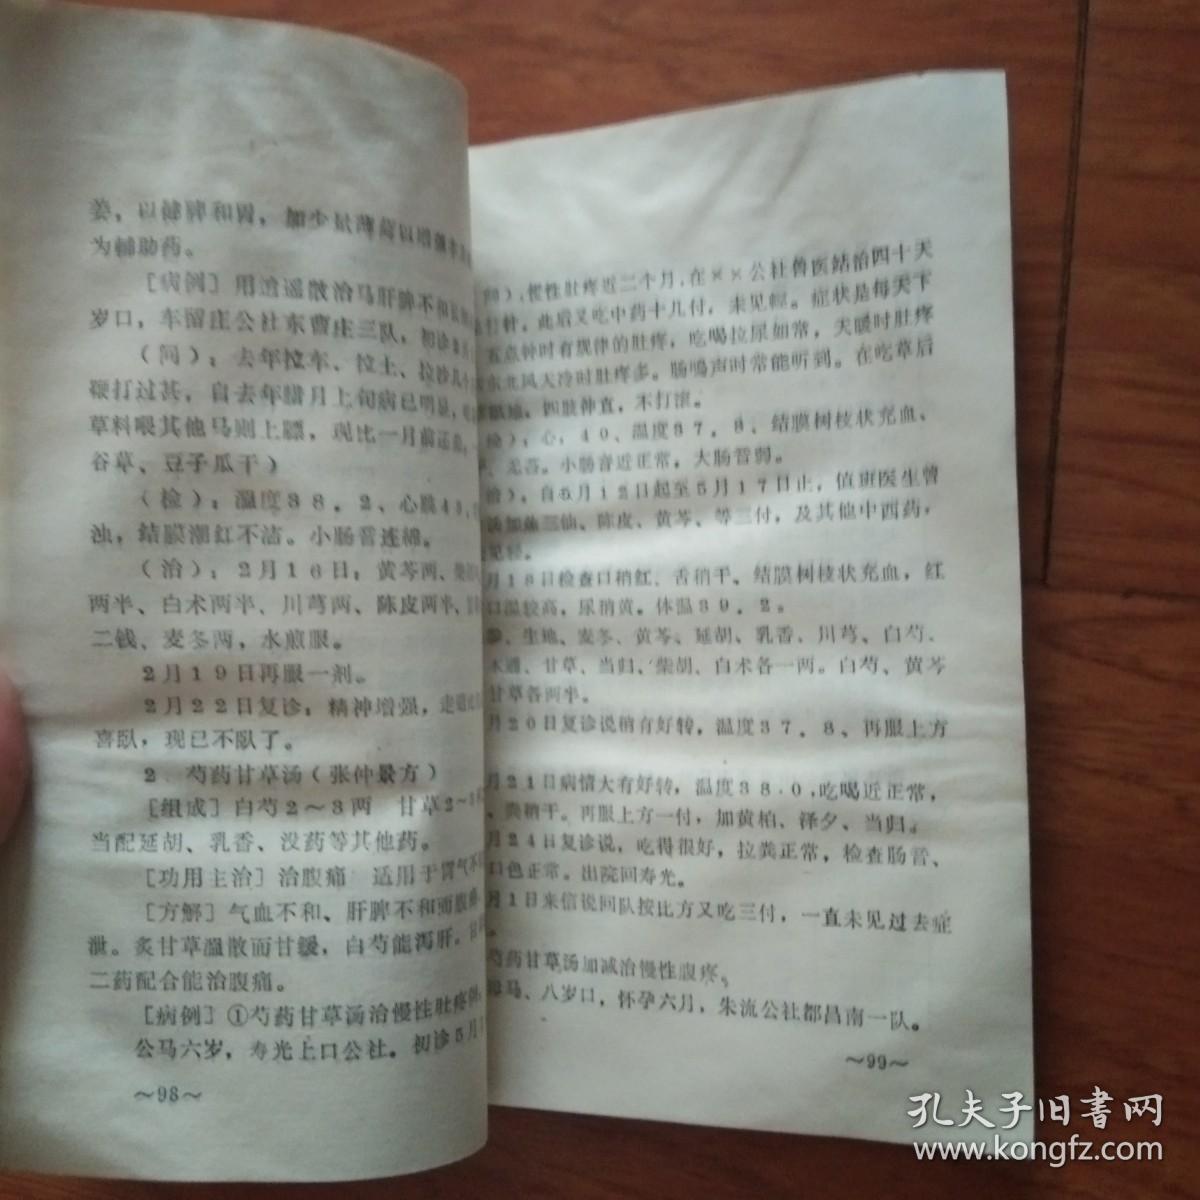 姜，以健脾和胃，加少量薄荷以增强
为辅助药。
［病例］用逍遥散治马肝脾不和
岁口，车留庄公社东曹庄三队，初诊
（问）：去年拉车、拉土、拉沙几
鞭打过甚，自去年腊月上旬病已明显，
草料喂其他马则上膘，现比一月前还
谷草、豆子瓜干）
（检）：温度３８．２、心跳４
浊，结膜潮红不洁。小肠音连绵。
（治）：２月１６日：黄芩两、
两半、白术两半、川芎两、陈皮两半、
二钱、麦冬两，水煎服。
２月１９日再服一剂。
２月２２日复诊：精神增强，走
喜卧，现已不卧了。
２　芍药甘草汤（张仲景方）
［组成］白芍２～３两　甘草２～
当配延胡、乳香、没药等其他药。
［功用主治］治腹痛　适用于胃气不
［方解］气血不和、肝脾不和而腹
泄。炙甘草温散而甘缓，白芍能泻肝。
二药配合能治腹痛。
［病例］①芍药甘草汤治慢性肚疼
公马六岁，寿光上口公社。初诊５月
～98～
问），慢性肚疼近二个月，在××公社兽医站治四十天
打针。此后又吃中药十几付，未见轻。症状是每天下
五点钟时有规律的肚疼，吃喝拉尿如常，天暖时肚疼
东北风天冷时肚疼多。肠鸣声时常能听到。在吃草后
卧地，四肢伸直，不打滚。
检）：心：４０、温度３７．８、结膜树枝状充血、
无苔。小肠音近正常，大肠音弱。
治）：自５月１２日起至５月１７日止，值班医生曾
汤加焦三仙、陈皮、黄芩、等三付，及其他中西药，
见轻。
月１８日检查口稍红、舌稍干。结膜树枝状充血，红
口温较高，尿稍黄。体温３９．２。
、生地、麦冬、黄芩、延胡、乳香、川芎、白芍、
木通、甘草、当归、柴胡、白术各一两。白芍、黄芩
甘草各两半。
月２０日复诊说稍有好转，温度３７．８、再服上方
月２１日病情大有好转，温度３８．０，吃喝近正常，
、粪稍干。再服上方一付，加黄柏、泽夕、当归。
月２４日复诊说，吃得很好，拉粪正常，检查肠音、
口色正常。出院回寿光。
月１日来信说回队按比方又吃三付，一直未见过去症
。
芍药甘草汤加减治慢性腹疼。
母马、八岁口，怀孕六月，朱流公社都昌南一队。
～99～
孔夫子旧書网
www.kongfz.com